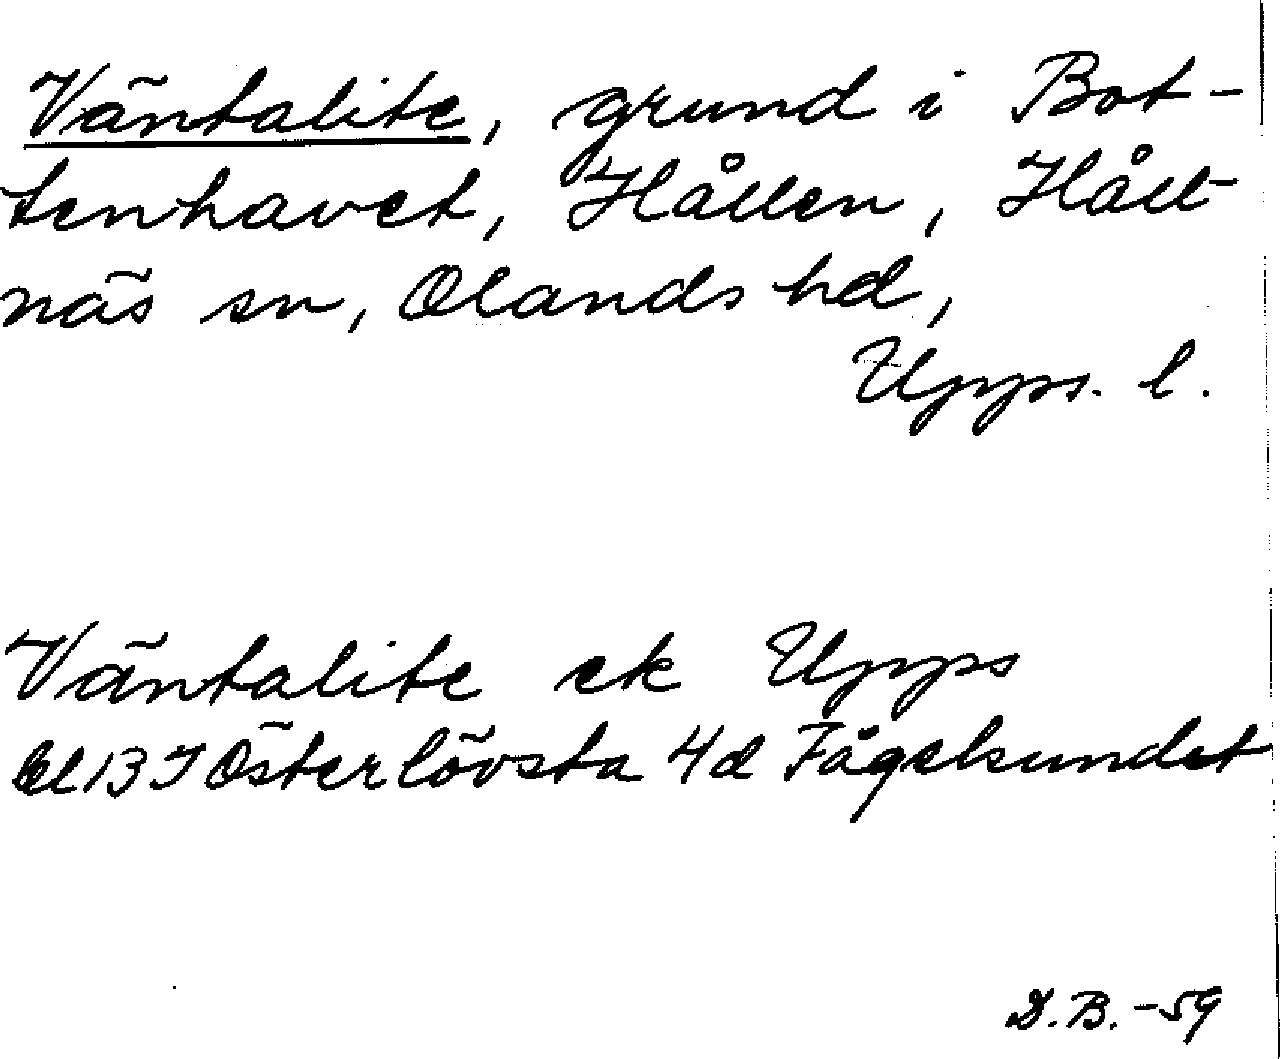 Väntalite, grund i Bot-
tenhavet, Hållen, Håll-
näs sn, Olands hd,
Upps. l.
Väntalite ek Upps
bl 13 I Österlövsta 4d Fågelsundet
D.B. -59